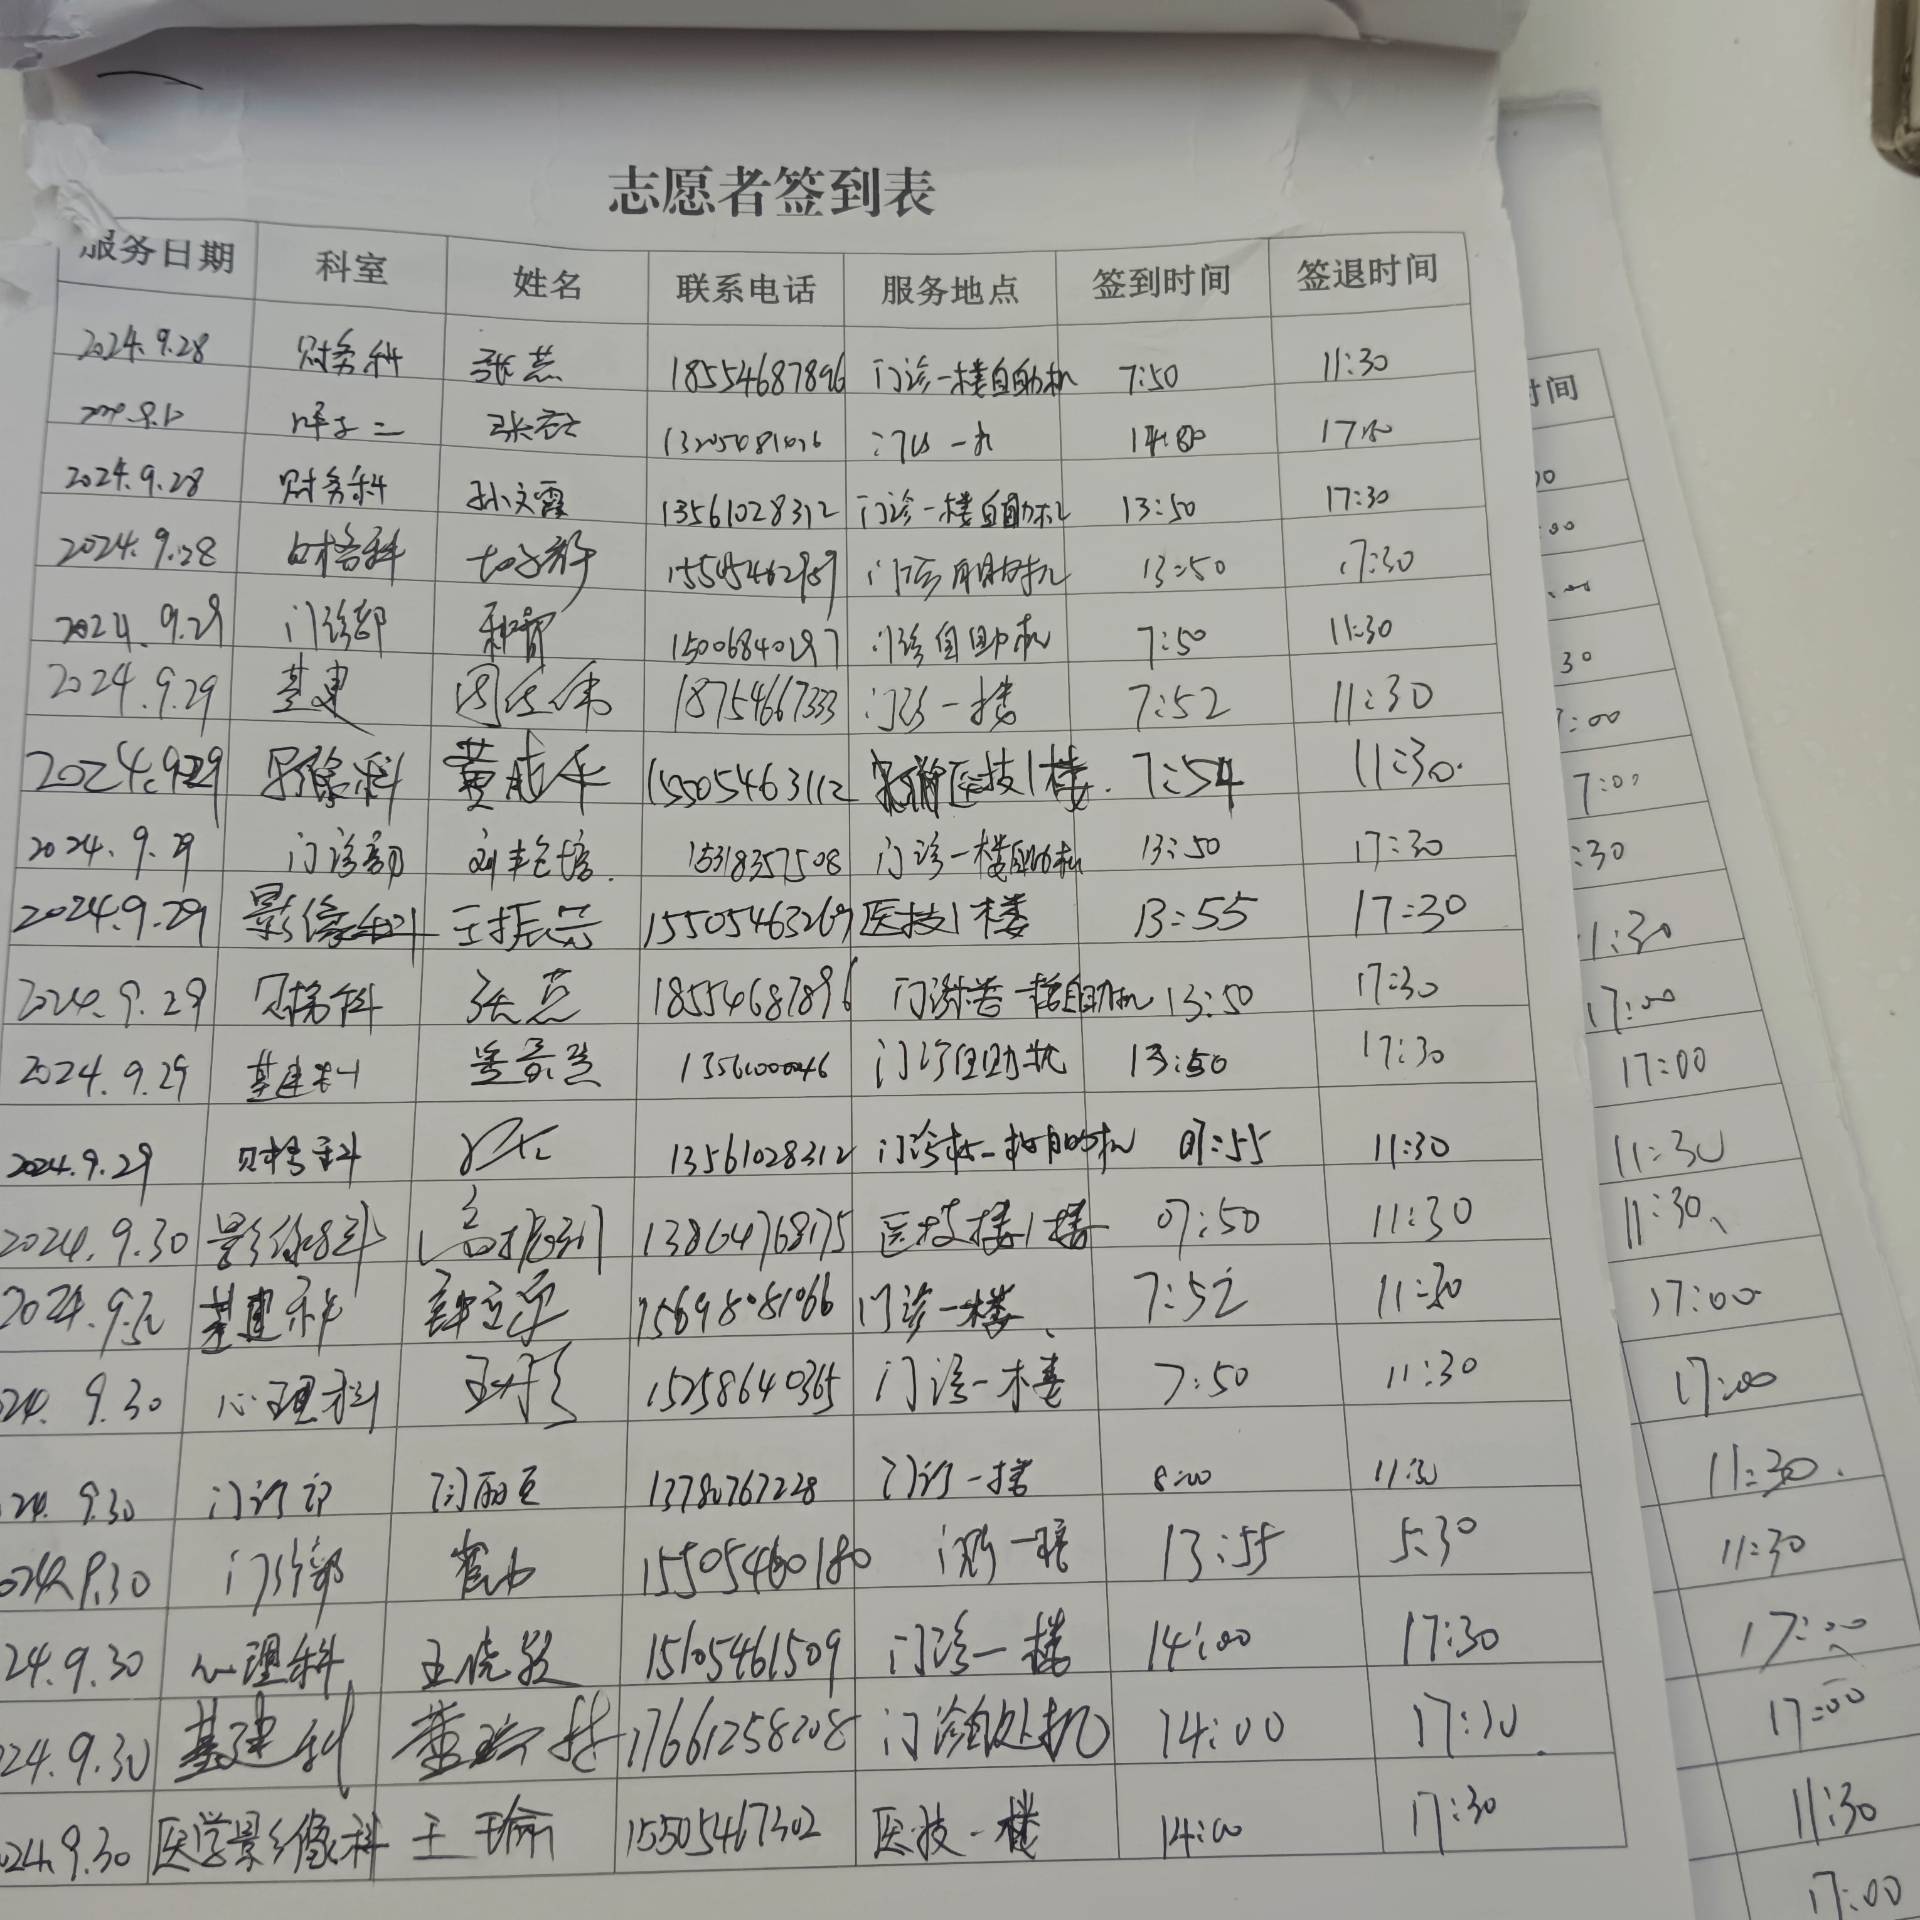 志愿者签到表
服务日期 科室 姓名 联系电话 服务地点 签到时间 签退时间
2024.9.28 财务科 张燕 18554687896 门诊一楼自助机 7:50 11:30
13205481026
2024.9.28 财务科 孙文霞 13561028312 门诊一楼自助机 13:50 17:30
2024.9.28 财务科 门诊自助机 13:50 17:30
2024.9.29 门诊部 15006840297 门诊自助机 7:50 11:30
2024.9.29 基建 18754667333 门诊一楼 7:52 11:30
2024.9.29 影像科 黄成华 15505463112 医技1楼. 7:54 11:30.
2024.9.29 门诊部 15318357508 门诊一楼自助机 13:50 17:30
2024.9.29 影像科 王振芸 15505463269 医技1楼 13:55 17:30
2024.9.29 财务科 张燕 18554687896 一楼自助机 13:50 17:30
2024.9.29 基建科 13561000046 门诊自助机 13:50 17:30
2024.9.29 财务科 13561028312 07:55 11:30
2024.9.30 影像科 13864768175 医技楼1楼 07:50 11:30
2024.9.30 基建科 15698081066 门诊一楼 7:52 11:30
24. 9.30 心理科 15258640365 门诊一楼 7:50 11:30
24. 9.30 门诊部 13780767228 门诊一楼 8:00 11:30
024.9.30 门诊部 15505460180 门诊一楼 13:55 5:30
24.9.30 心理科 王晓 15105461509 门诊一楼 14:00 17:30
24.9.30 基建科 17661258208 门诊 14:00 17:30
024.9.30 医学影像科 王瑜 15505467302 医技一楼 14:00 17:30
时间
00
:00
30
:00
7:00
:30
11:30
17:00
17:00
11:30
11:30
17:00
17:00
11:30.
11:30
17:00
17:00
11:30
17:00